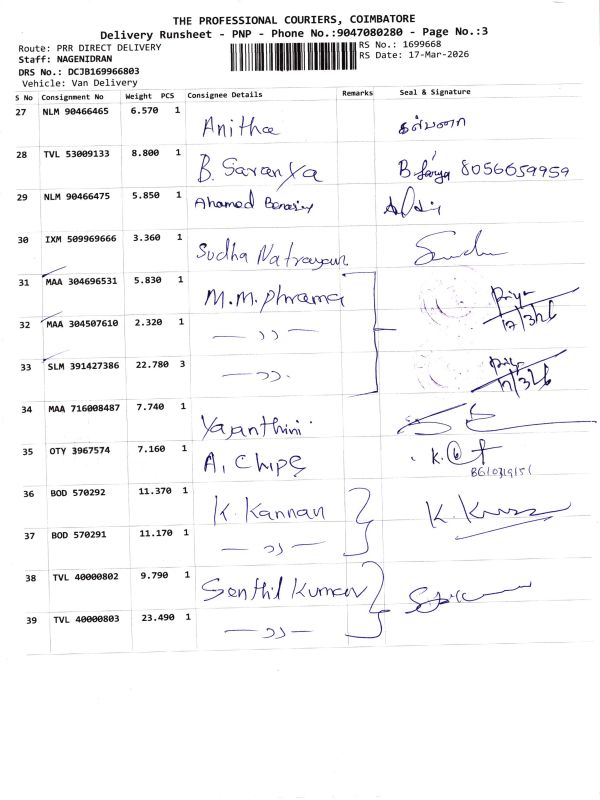 THE PROFESSIONAL COURIERS, COIMBATORE
Delivery Runsheet - PNP - Phone No.:9047080280 - Page No.:3
Route: PRR DIRECT DELIVERY
RS No.: 1699668
Staff: NAGENIDRAN
RS Date: 17-Mar-2026
DRS No.: DCJB169966803
Vehicle: Van Delivery
S No Consignment No Weight PCS Consignee Details Remarks Seal & Signature
27 NLM 90466465 6.570 1 Anitha கல்பனா
28 TVL 53009133 8.800 1 B. Saranya B. 8056659959
29 NLM 90466475 5.850 1 Ahamed
30 IXM 509969666 3.360 1 Sudha Natrayan
31 MAA 304696531 5.830 1 M.M. Pharma Priya 17/3/26
32 MAA 304507610 2.320 1 — ,, —
33 SLM 391427386 22.780 3 — ,, Priya 17/3/26
34 MAA 716008487 7.740 1 Yajanthini
35 OTY 3967574 7.160 1 A1 Chips K.
36 BOD 570292 11.370 1 K. Kannan K.
37 BOD 570291 11.170 1 — ,, —
38 TVL 40000802 9.790 1 Senthil Kumar
39 TVL 40000803 23.490 1 — ,, —